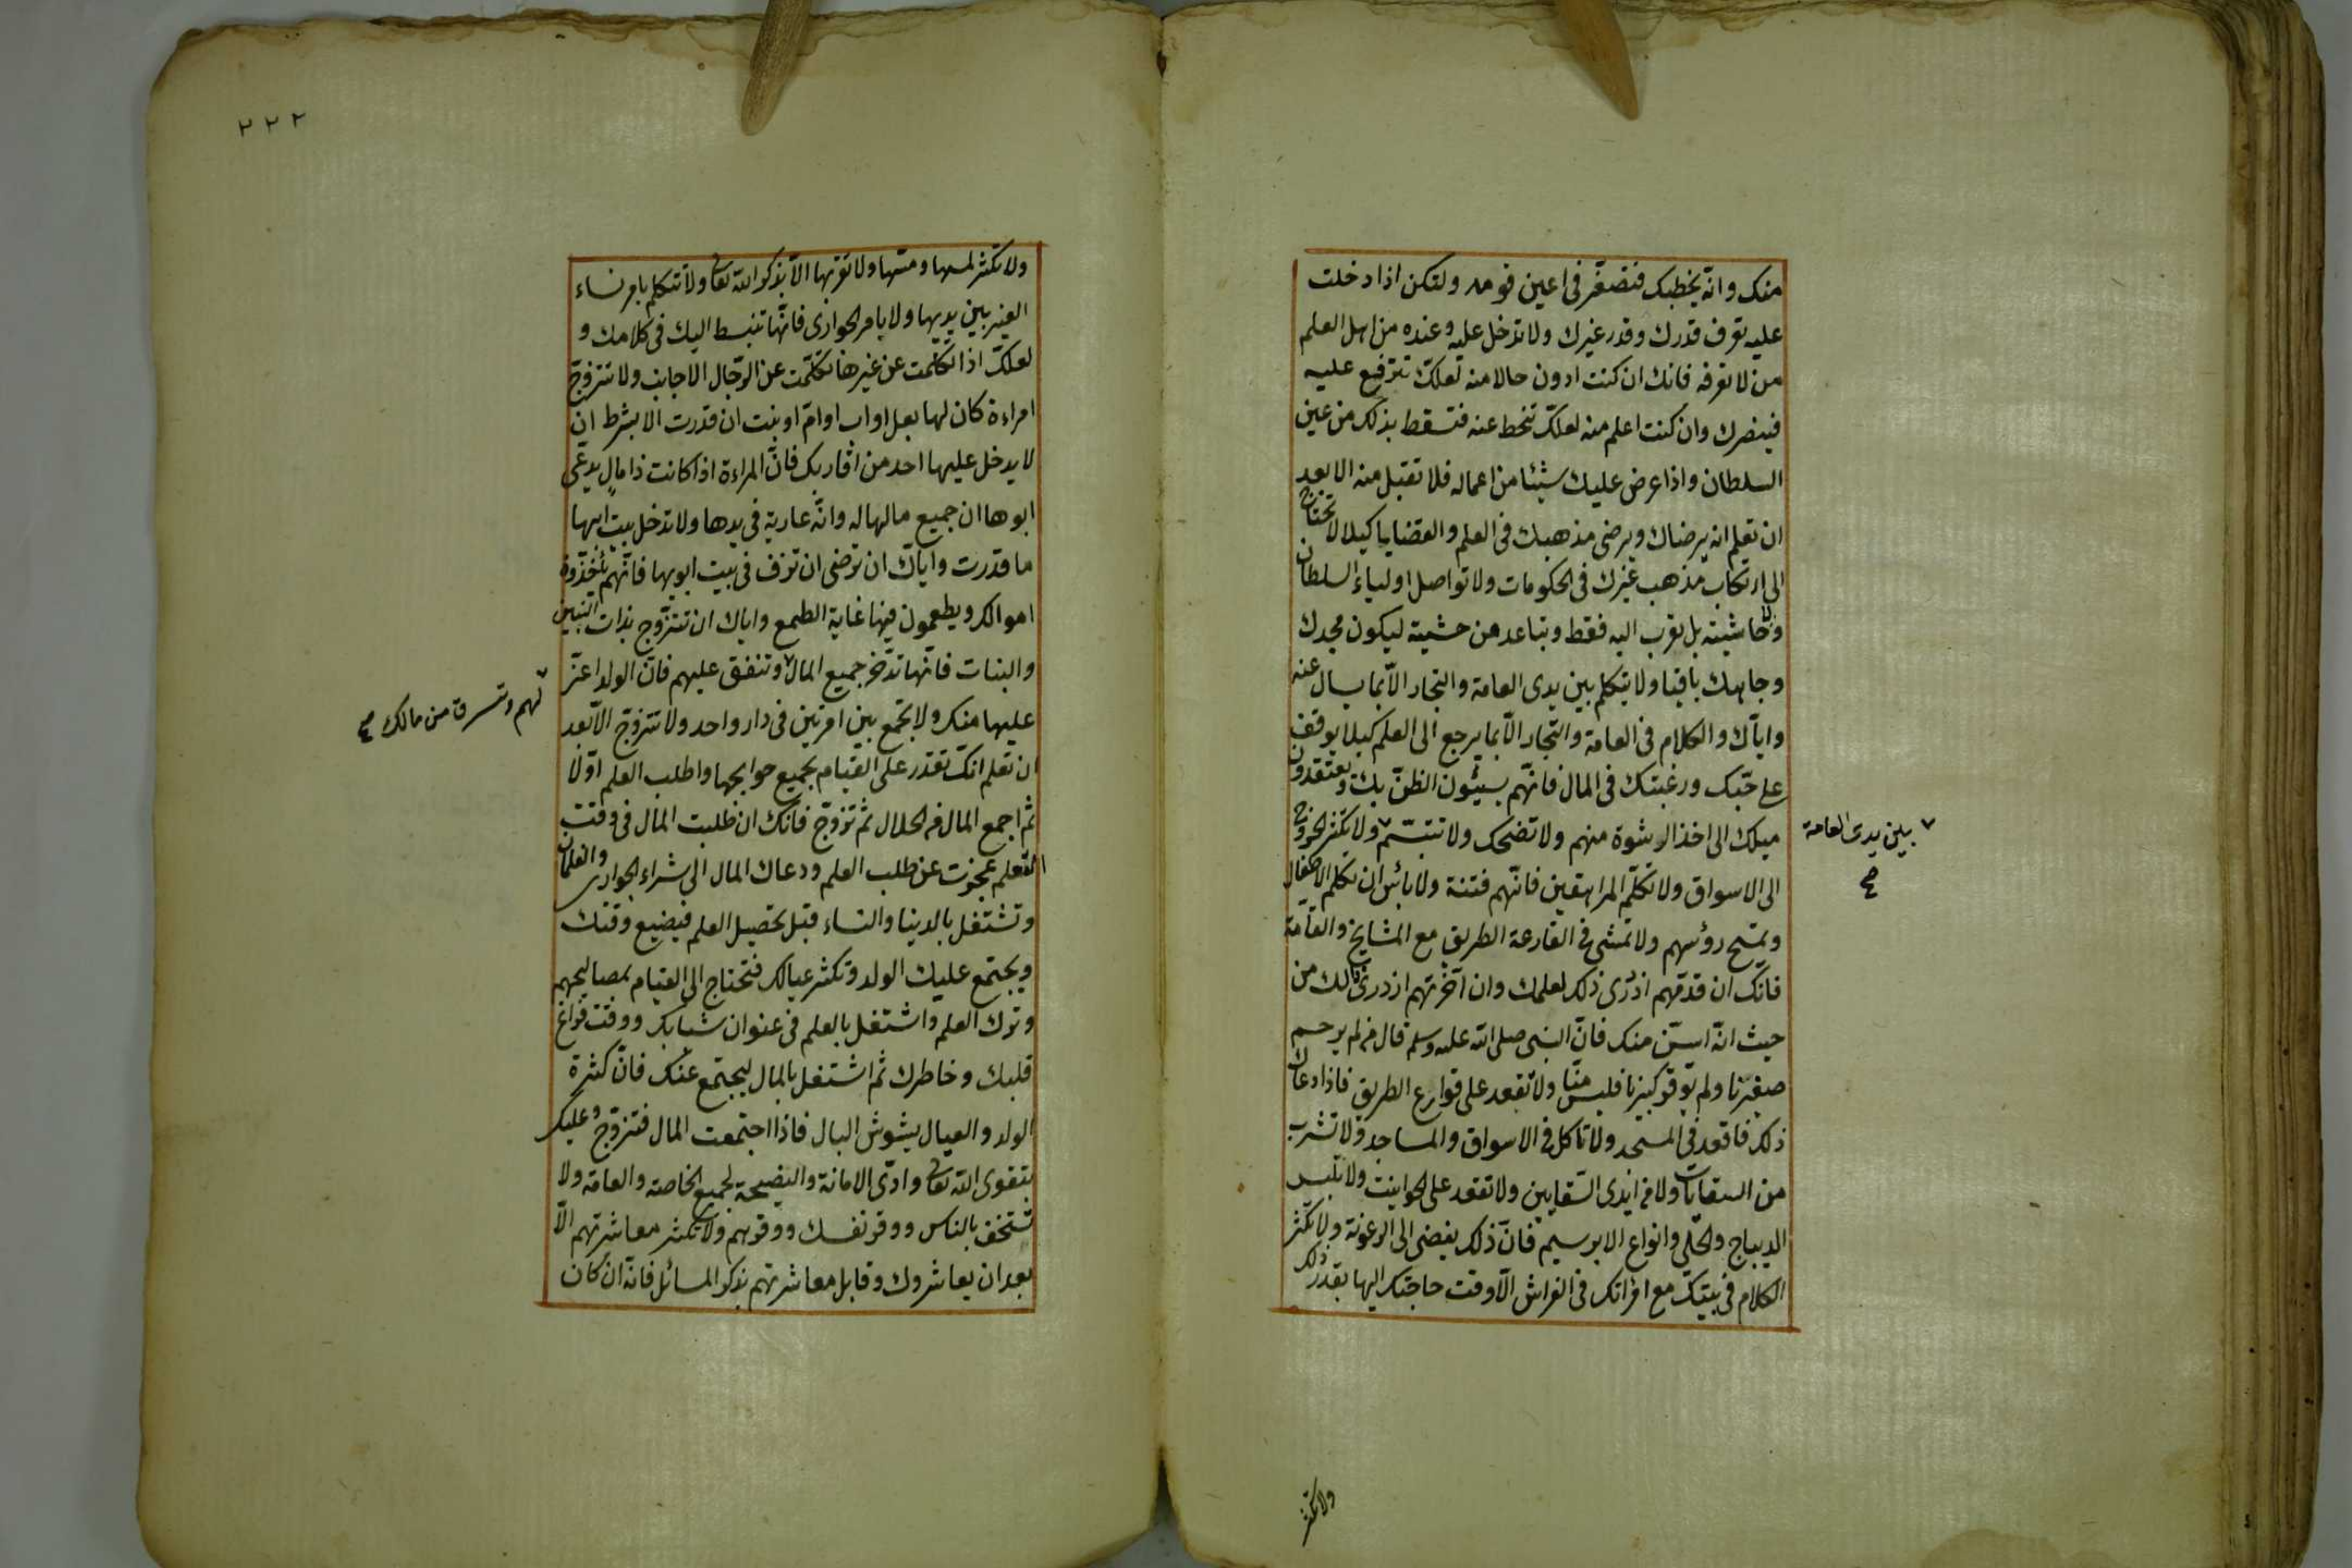 منك وانه يخطبك فتصغر فى اعين قومه ولتكن اذا دخلت
عليه تعرف قدرك وقدر غيرك ولا تدخل عليه وعنده من اهل العلم
من لا تعرفه فانك ان كنت ادون حالا منه لعلك تترفع عليه
فيضرك وان كنت اعلم منه لعلك تنحط عنه فتسقط بذلك من عين
السلطان واذا عرض عليك شيئا من اعماله فلا تقبل منه الا بعد
ان تعلم انه يرضاك ويرضى مذهبك فى العلم والقضايا كيلا لا تحتاج
الى ارتكاب مذهب غيرك فى الحكومات ولا تواصل اولياء السلطان
ولا حاشيته بل تقرب اليه فقط وتباعد من حشيته ليكون مجدك
وجاهك باقيا ولا يتكلم بين يدى العامة والتجار الا بما يسال عنه
واياك والكلام فى العامة والتجار الا بما يرجع الى العلم كيلا يوقف
على حبك ورغبتك فى المال فانهم يسيئون الظن بك ويعتقدون
ميلك الى اخذ الرشوة منهم ولا تضحك ولا تتبسم ولا تكثر الخروج
٧ بين يدى العامة
صح
الى الاسواق ولا تكلم المراهقين فانهم فتنة ولا بائس ان تكلم الاطفال
وتمسح رؤسهم ولا تمشى فى القارعة الطريق مع المشايخ والعامة
فانك ان قدمتهم ازدرى ذلك لعلمك وان آخرتهم ازدرى بك من
حيث انه اسن منك فان النبى صلى الله عليه وسلم قال من لم يرحم
صغيرنا ولم يوقر كبيرنا فليس منا ولا تقعد على قوارع الطريق فاذا دعاك
ذلك فاقعد فى المسجد ولا تاكل فى الاسواق والمساجد ولا تشرب
من السقايات ولا من ايدى السقايين ولا تقعد على الحوانيت ولا تلبس
الديباج والحلى وانواع الابريسم فان ذلك يفضى الى الرعونة ولا تكثر
الكلام فى بيتك مع امرأتك فى الفراش الا وقت حاجتك اليها بقدر ذلك
ولا تكثر
٢٢٢
ولا تكثر لمسها ومسها ولا تقربها الا بذكر الله تعالى ولا تتكلم بامر نساء
الغير بين يديها ولا بامر الجوارى فانها تنبسط اليك فى كلامك و
لعلك اذا تكلمت عن غيرها تكلمت عن الرجال الاجانب ولا تتزوج
امراءة كان لها بعل او اب او ام او بنت ان قدرت الا بشرط ان
لا يدخل عليها احد من اقاربك فان المراءة اذا كانت ذا مال يدعى
ابوها ان جميع مالها له وانه عارية فى يدها ولا تدخل بيت ابيها
ما قدرت واياك ان ترضى ان تزف فى بيت ابويها فانهم يأخذون
اموالك ويطمعون فيها غاية الطمع واياك ان تتزوج بذات البنين
والبنات فانها تدخر جميع المال ٧ وتنفق عليهم فان الولد اعز
٧ لهم وتسرق من مالك صح
عليها منك ولا تجمع بين امرتين فى دار واحد ولا تتزوج الا بعد
ان تعلم انك تقدر على القيام بجميع حوايجها واطلب العلم اولا
ثم اجمع المال من الحلال ثم تزوج فانك ان طلبت المال فى وقت
التعلم عجزت عن طلب العلم ودعاك المال الى شراء الجوارى والغلمان
وتشتغل بالدنيا والنساء قبل تحصيل العلم فيضيع وقتك
ويجتمع عليك الولد وتكثر عيالك فتحتاج الى القيام بمصالحهم
وترك العلم واشتغل بالعلم فى عنوان شبابك ووقت فراغ
قلبك وخاطرك ثم اشتغل بالمال ليجتمع عندك فان كثرة
الولد والعيال يشوش البال فاذا اجتمعت المال فتزوج وعليك
بتقوى الله تعالى وادى الامانة والنصيحة لجميع الخاصة والعامة ولا
تستخف بالناس ووقر نفسك ووقرهم ولا تكثر معاشرتهم الا
بعد ان يعاشروك وقابل معاشرتهم بذكر المسائل فانه ان كان